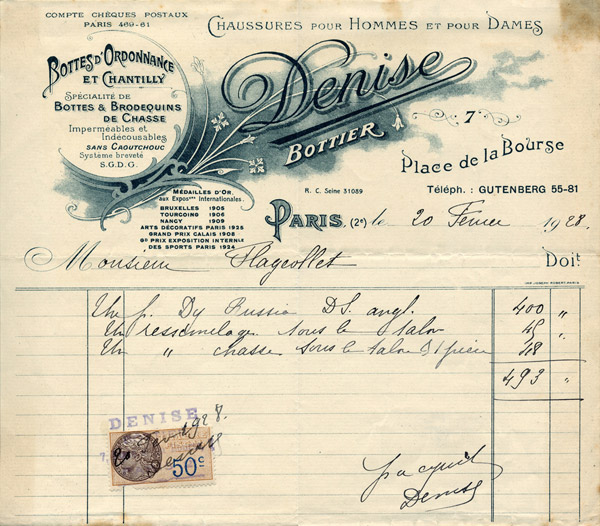 COMPTE CHÈQUES POSTAUX
PARIS 469-61
CHAUSSURES POUR HOMMES ET POUR DAMES
BOTTES D'ORDONNANCE
ET CHANTILLY
SPÉCIALITÉ DE
BOTTES & BRODEQUINS
DE CHASSE
Imperméables et
Indécousables
SANS CAOUTCHOUC
Système breveté
S.G.D.G.
Denise
BOTTIER
7
Place de la Bourse
Téléph. : GUTENBERG 55-81
MÉDAILLES D'OR,
aux Exposons Internationales.
BRUXELLES 1905
TOURCOING 1906
NANCY 1909
ARTS DÉCORATIFS PARIS 1925
GRAND PRIX CALAIS 1908
GD PRIX EXPOSITION INTERNLE
DES SPORTS PARIS 1924
R. C. Seine 31089
PARIS, (2e) le 20 Février 1928.
Monsieur Flageollet Doit
IMP. JOSEPH ROBERT, PARIS
Un p. Dy Russia DS. angl. 400 "
Un ressemelage sous le talon 45 "
Un " chasse sous le talon 48 "
493 "
DENISE
20 Fev 1928.
Denise
50c
Pr acquit
Denise